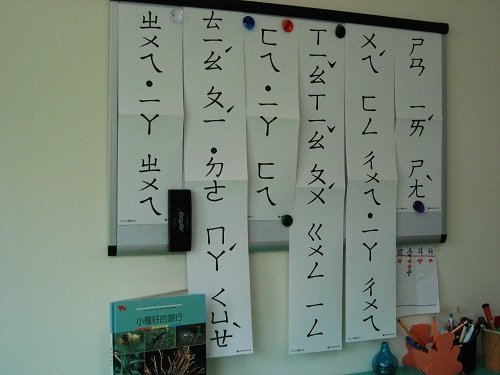 ㄕㄢ ㄧㄞˊ ㄕㄤˋ
ㄨㄟˊ ㄈㄥ ㄔㄨㄟ ˙ㄧㄚ ㄔㄨㄟ
ㄒㄧㄠˇ ㄒㄧㄠˇ ㄆㄨˊ ㄍㄨㄥ ㄧㄥ
ㄈㄟ ˙ㄧㄚ ㄈㄟ
ㄊㄧㄠˊ ㄆㄧˊ ˙ㄉㄜ ㄇㄚˊ ㄑㄩㄝˋ
ㄓㄨㄟ ˙ㄧㄚ ㄓㄨㄟ
小種籽的旅行